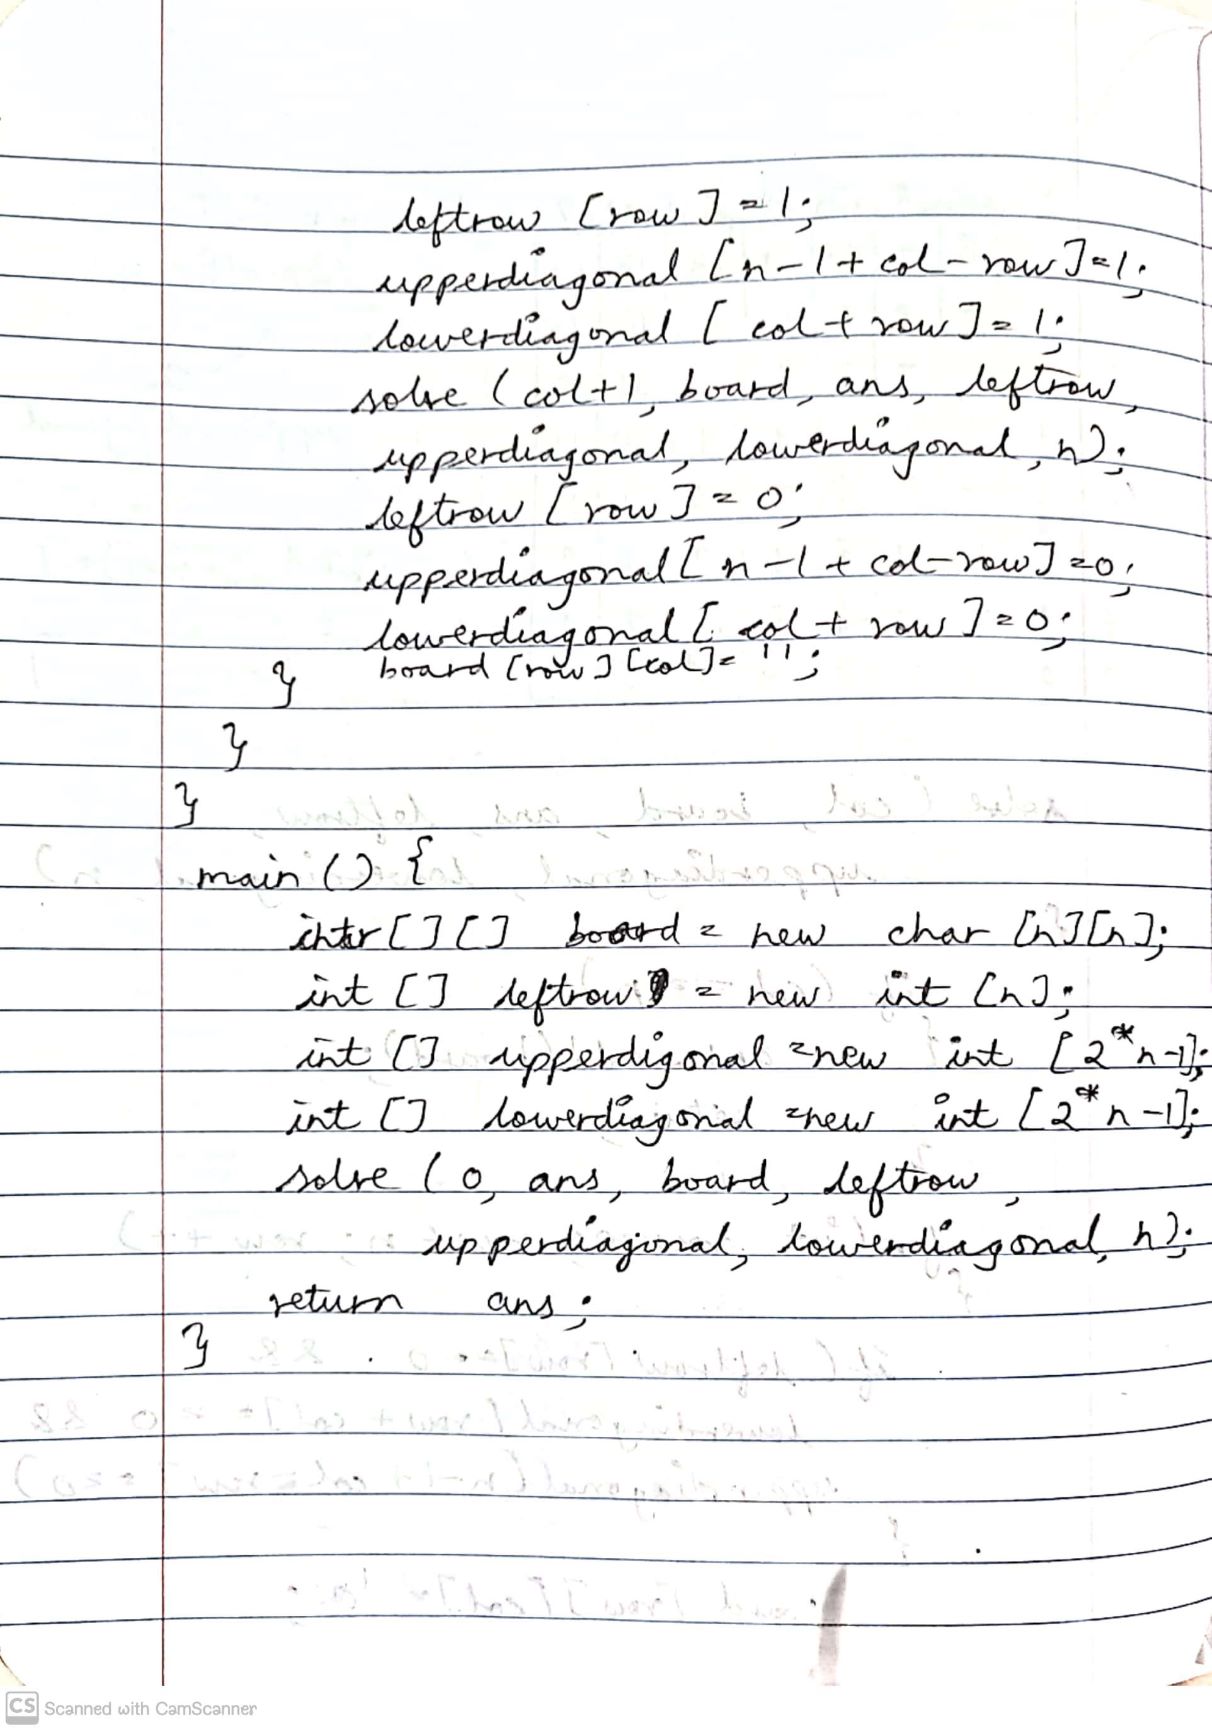 leftrow [row] = 1;
upperdiagonal [n-1+col-row]=1;
lowerdiagonal [col+row]=1;
solve (col+1, board, ans, leftrow,
upperdiagonal, lowerdiagonal, n);
leftrow [row] = 0;
upperdiagonal [n-1+col-row]=0;
lowerdiagonal [col+row]=0;
board [row][col]= '';
}
}
}
main () {
[][] board = new char [n][n];
int [] leftrow = new int [n];
int [] upperdigonal =new int [2*n-1];
int [] lowerdiagonal =new int [2*n-1];
solve (0, ans, board, leftrow,
upperdiagonal, lowerdiagonal, n);
return ans;
}
CS Scanned with CamScanner